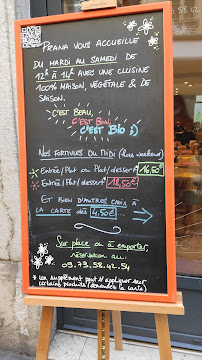 Prana vous accueille
du mardi au samedi de
12h à 14h avec une cuisine
100% maison, végétale & de
saison.
C'est beau,
c'est bon,
c'est bio ;)
Nos formules du midi (hors weekend)
Entrée/Plat ou Plat/dessert 16,50€
Entrée/Plat/dessert 18,50€
Et bien d'autres choix à
la carte dès 4,50€...
Sur place ou à emporter,
réservation au:
09.73.58.42.54
* un supplément peut s'appliquer sur
certains produits (demandez la carte)